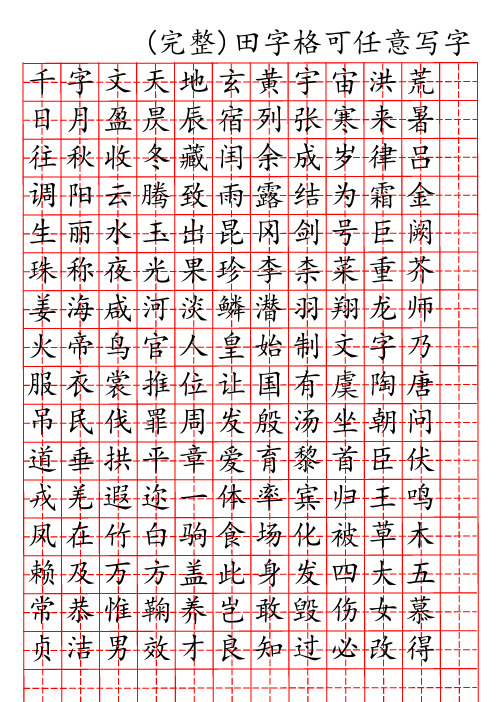 (完整)田字格可任意写字
千字文天地玄黄宇宙洪荒
日月盈昃辰宿列张寒来暑
往秋收冬藏闰余成岁律吕
调阳云腾致雨露结为霜金
生丽水玉出昆冈剑号巨阙
珠称夜光果珍李柰菜重芥
姜海咸河淡鳞潜羽翔龙师
火帝鸟官人皇始制文字乃
服衣裳推位让国有虞陶唐
吊民伐罪周发殷汤坐朝问
道垂拱平章爱育黎首臣伏
戎羌遐迩一体率宾归王鸣
凤在竹白驹食场化被草木
赖及万方盖此身发四大五
常恭惟鞠养岂敢毁伤女慕
贞洁男效才良知过必改得